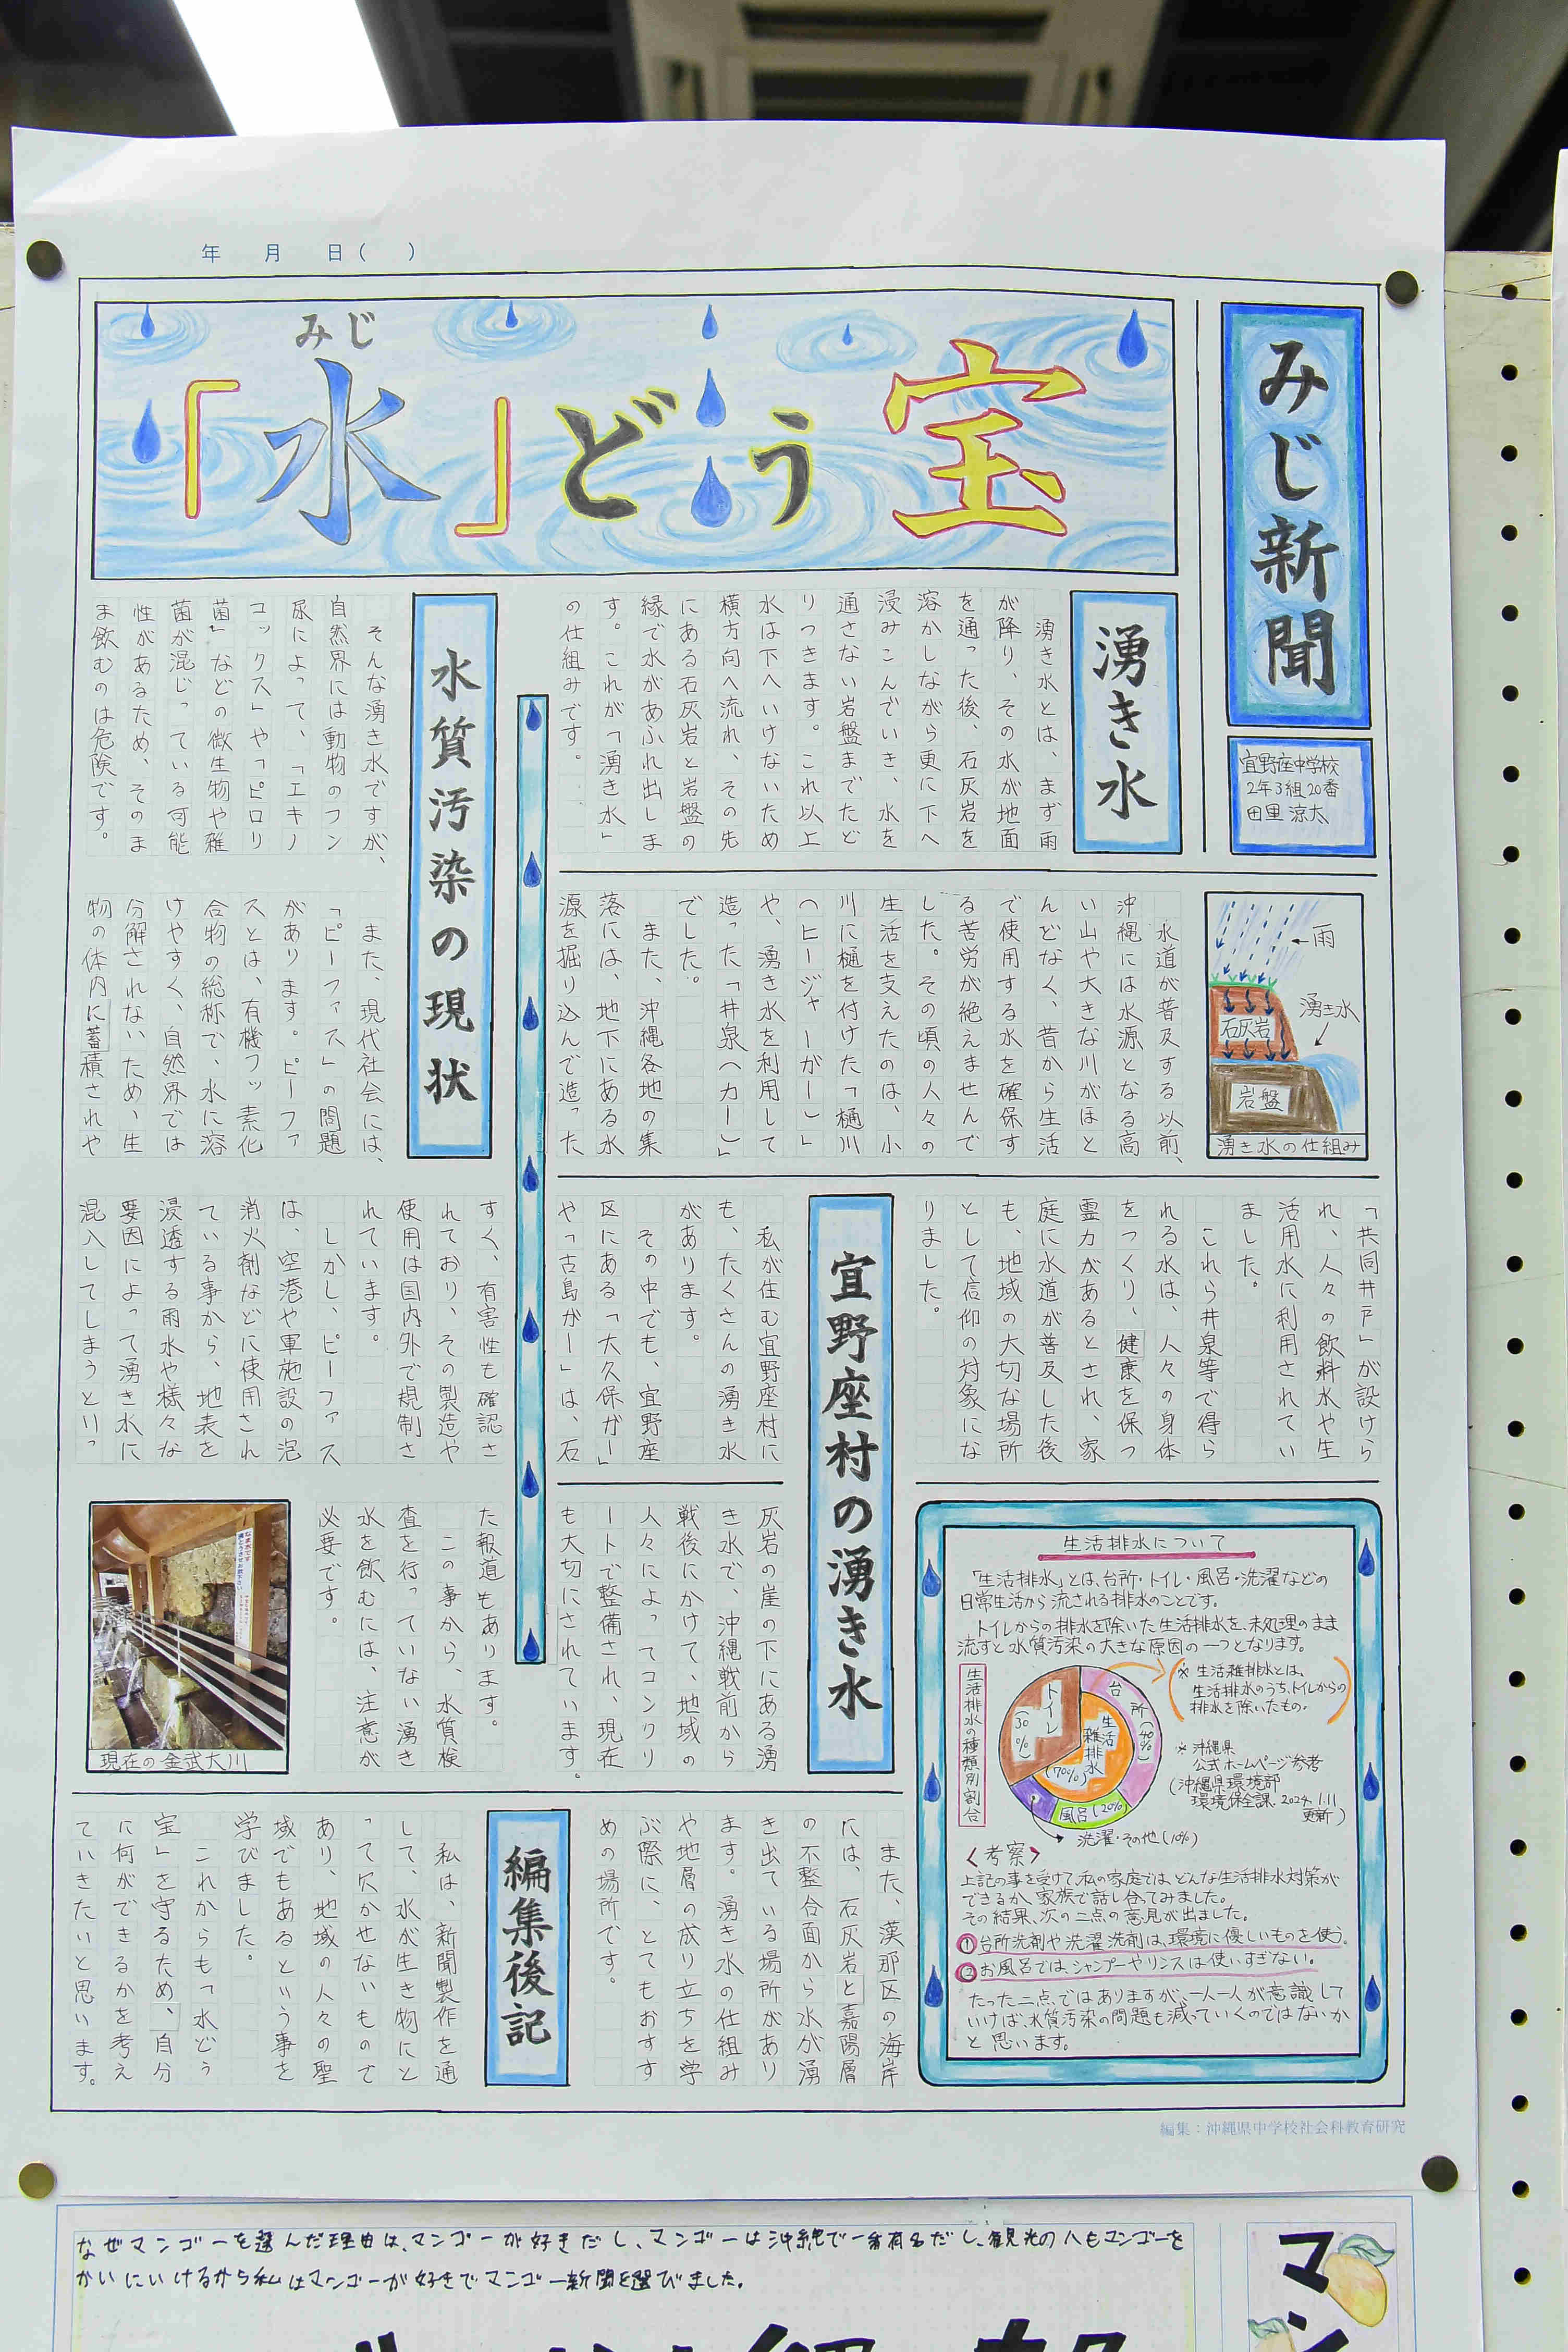 年　月　日（　）
みじ新聞
宜野座中学校
2年3組20番
田里 涼太
みじ
「水」どぅ宝
湧き水
湧き水とは、まず雨
が降り、その水が地面
を通った後、石灰岩を
溶かしながら更に下へ
浸みこんでいき、水を
通さない岩盤までたど
りつきます。これ以上
水は下へいけないため
横方向へ流れ、その先
にある石灰岩と岩盤の
縁で水があふれ出しま
す。これが「湧き水」
の仕組みです。
雨
湧き水
石灰岩
岩盤
湧き水の仕組み
水道が普及する以前、
沖縄には水源となる高
い山や大きな川がほと
んどなく、昔から生活
で使用する水を確保す
る苦労が絶えませんで
した。その頃の人々の
生活を支えたのは、小
川に樋を付けた「樋川
（ヒージャーがー）」
や、湧き水を利用して
造った「井泉（カー）」
でした。
また、沖縄各地の集
落には、地下にある水
源を掘り込んで造った
「共同井戸」が設けら
れ、人々の飲料水や生
活用水に利用されてい
ました。
これら井泉等で得ら
れる水は、人々の身体
をつくり、健康を保つ
霊力があるとされ、家
庭に水道が普及した後
も、地域の大切な場所
として信仰の対象にな
りました。
宜野座村の湧き水
私が住む宜野座村に
も、たくさんの湧き水
があります。
その中でも、宜野座
区にある「大久保ガー」
や「古島がー」は、石
灰岩の崖の下にある湧
き水で、沖縄戦前から
戦後にかけて、地域の
人々によってコンクリ
ートで整備され、現在
も大切にされています。
また、漢那区の海岸
には、石灰岩と嘉陽層
の不整合面から水が湧
き出ている場所があり
ます。湧き水の仕組み
や地層の成り立ちを学
ぶ際に、とてもおすす
めの場所です。
水質汚染の現状
そんな湧き水ですが、
自然界には動物のフン
尿によって、「エキノ
コックス」や「ピロリ
菌」などの微生物や雑
菌が混じっている可能
性があるため、そのま
ま飲むのは危険です。
また、現代社会には、
「ピーファス」の問題
があります。ピーファ
スとは、有機フッ素化
合物の総称で、水に溶
けやすく、自然界では
分解されないため、生
物の体内に蓄積されや
すく、有害性も確認さ
れており、その製造や
使用は国内外で規制さ
れています。
しかし、ピーファス
は、空港や軍施設の泡
消火剤などに使用され
ている事から、地表を
浸透する雨水や様々な
要因によって湧き水に
混入してしまうとりっ
た報道もあります。
この事から、水質検
査を行っていない湧き
水を飲むには、注意が
必要です。
現在の金武大川
生活排水について
「生活排水」とは、台所・トイレ・風呂・洗濯などの
日常生活から流される排水のことです。
トイレからの排水を除いた生活排水を、未処理のまま
流すと水質汚染の大きな原因の一つとなります。
生活排水の種類別割合
トイレ（30%）
台所（40%）
生活雑排水（70%）
風呂（20%）
洗濯・その他（10%）
※ 生活雑排水とは、
生活排水のうち、トイレからの
排水を除いたもの。
※ 沖縄県
公式ホームページ参考
（沖縄県環境部
環境保全課 2024.1.11
更新）
〈考察〉
上記の事を受けて、私の家庭では、どんな生活排水対策が
できるか、家族で話し合ってみました。
その結果、次の二点の意見が出ました。
①台所洗剤や洗濯洗剤は、環境に優しいものを使う。
②お風呂では、シャンプーやリンスは使いすぎない。
たった二点ではありますが、一人一人が意識して
いけば、水質汚染の問題も減っていくのではないか
と思います。
編集後記
私は、新聞製作を通
して、水が生き物にと
って欠かせないもので
あり、地域の人々の聖
域でもあるという事を
学びました。
これからも「水どぅ
宝」を守るため、自分
に何ができるかを考え
ていきたいと思います。
編集：沖縄県中学校社会科教育研究
なぜマンゴーを選んだ理由は、マンゴーが好きだし、マンゴーは沖縄で一番有名だし、観光の人もマンゴーを
かいにいけるから私はマンゴーが好きでマンゴー新聞を選びました。
マン